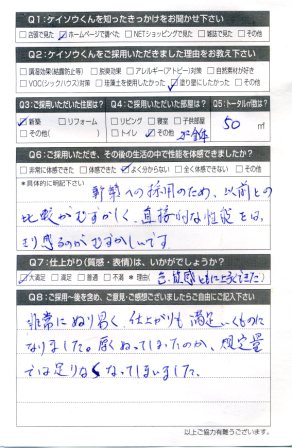 Q1：ケイソウくんを知ったきっかけをお聞かせ下さい
□店頭で見た ☑ホームページで調べた □NETショッピングで見た □雑誌で見た □その他
Q2：ケイソウくんをご採用いただきました理由をお教え下さい
□調湿効果(結露防止等) □脱臭効果 □アレルギー(アトピー)対策 □自然素材が好き
□VOC(シックハウス)対策 □珪藻土を使用したかった ☑塗り壁にしたかった □その他
Q3:ご採用した住居は？ Q4:ご採用した部屋は？ Q5:トータル㎡数は？
☑新築 □リフォーム □リビング □寝室 □子供部屋 50 ㎡
□その他( ) □トイレ ☑その他
Q6：ご採用いただき、その後の生活の中で性能を体感できましたか？
□非常に体感できた □体感できた ☑よく分からない □全く体感できない □その他
*具体的に明記下さい 新築への採用のため、以前との
比較がむずかしく、直接的な性能をは、
きり感るのがむずかしいです。
Q7：仕上がり(質感・表情)は、いかがでしょうか？
☑大満足 □満足 □普通 □不満 *理由(色、質感ともに上々でした)
Q8：ご採用～後を含め、ご意見・ご感想ございましたらご自由にご記入下さい
非常にぬり易く、仕上がりも満足いくものに
なりました。厚くぬってしまったのか、規定量
では足りなくなってしまいました。
以上ご協力有難うございます。